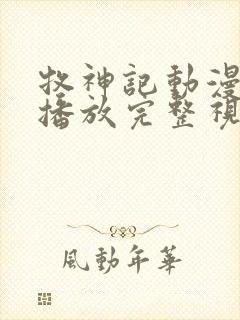 牧神記動漫
播放完整視
風動年華